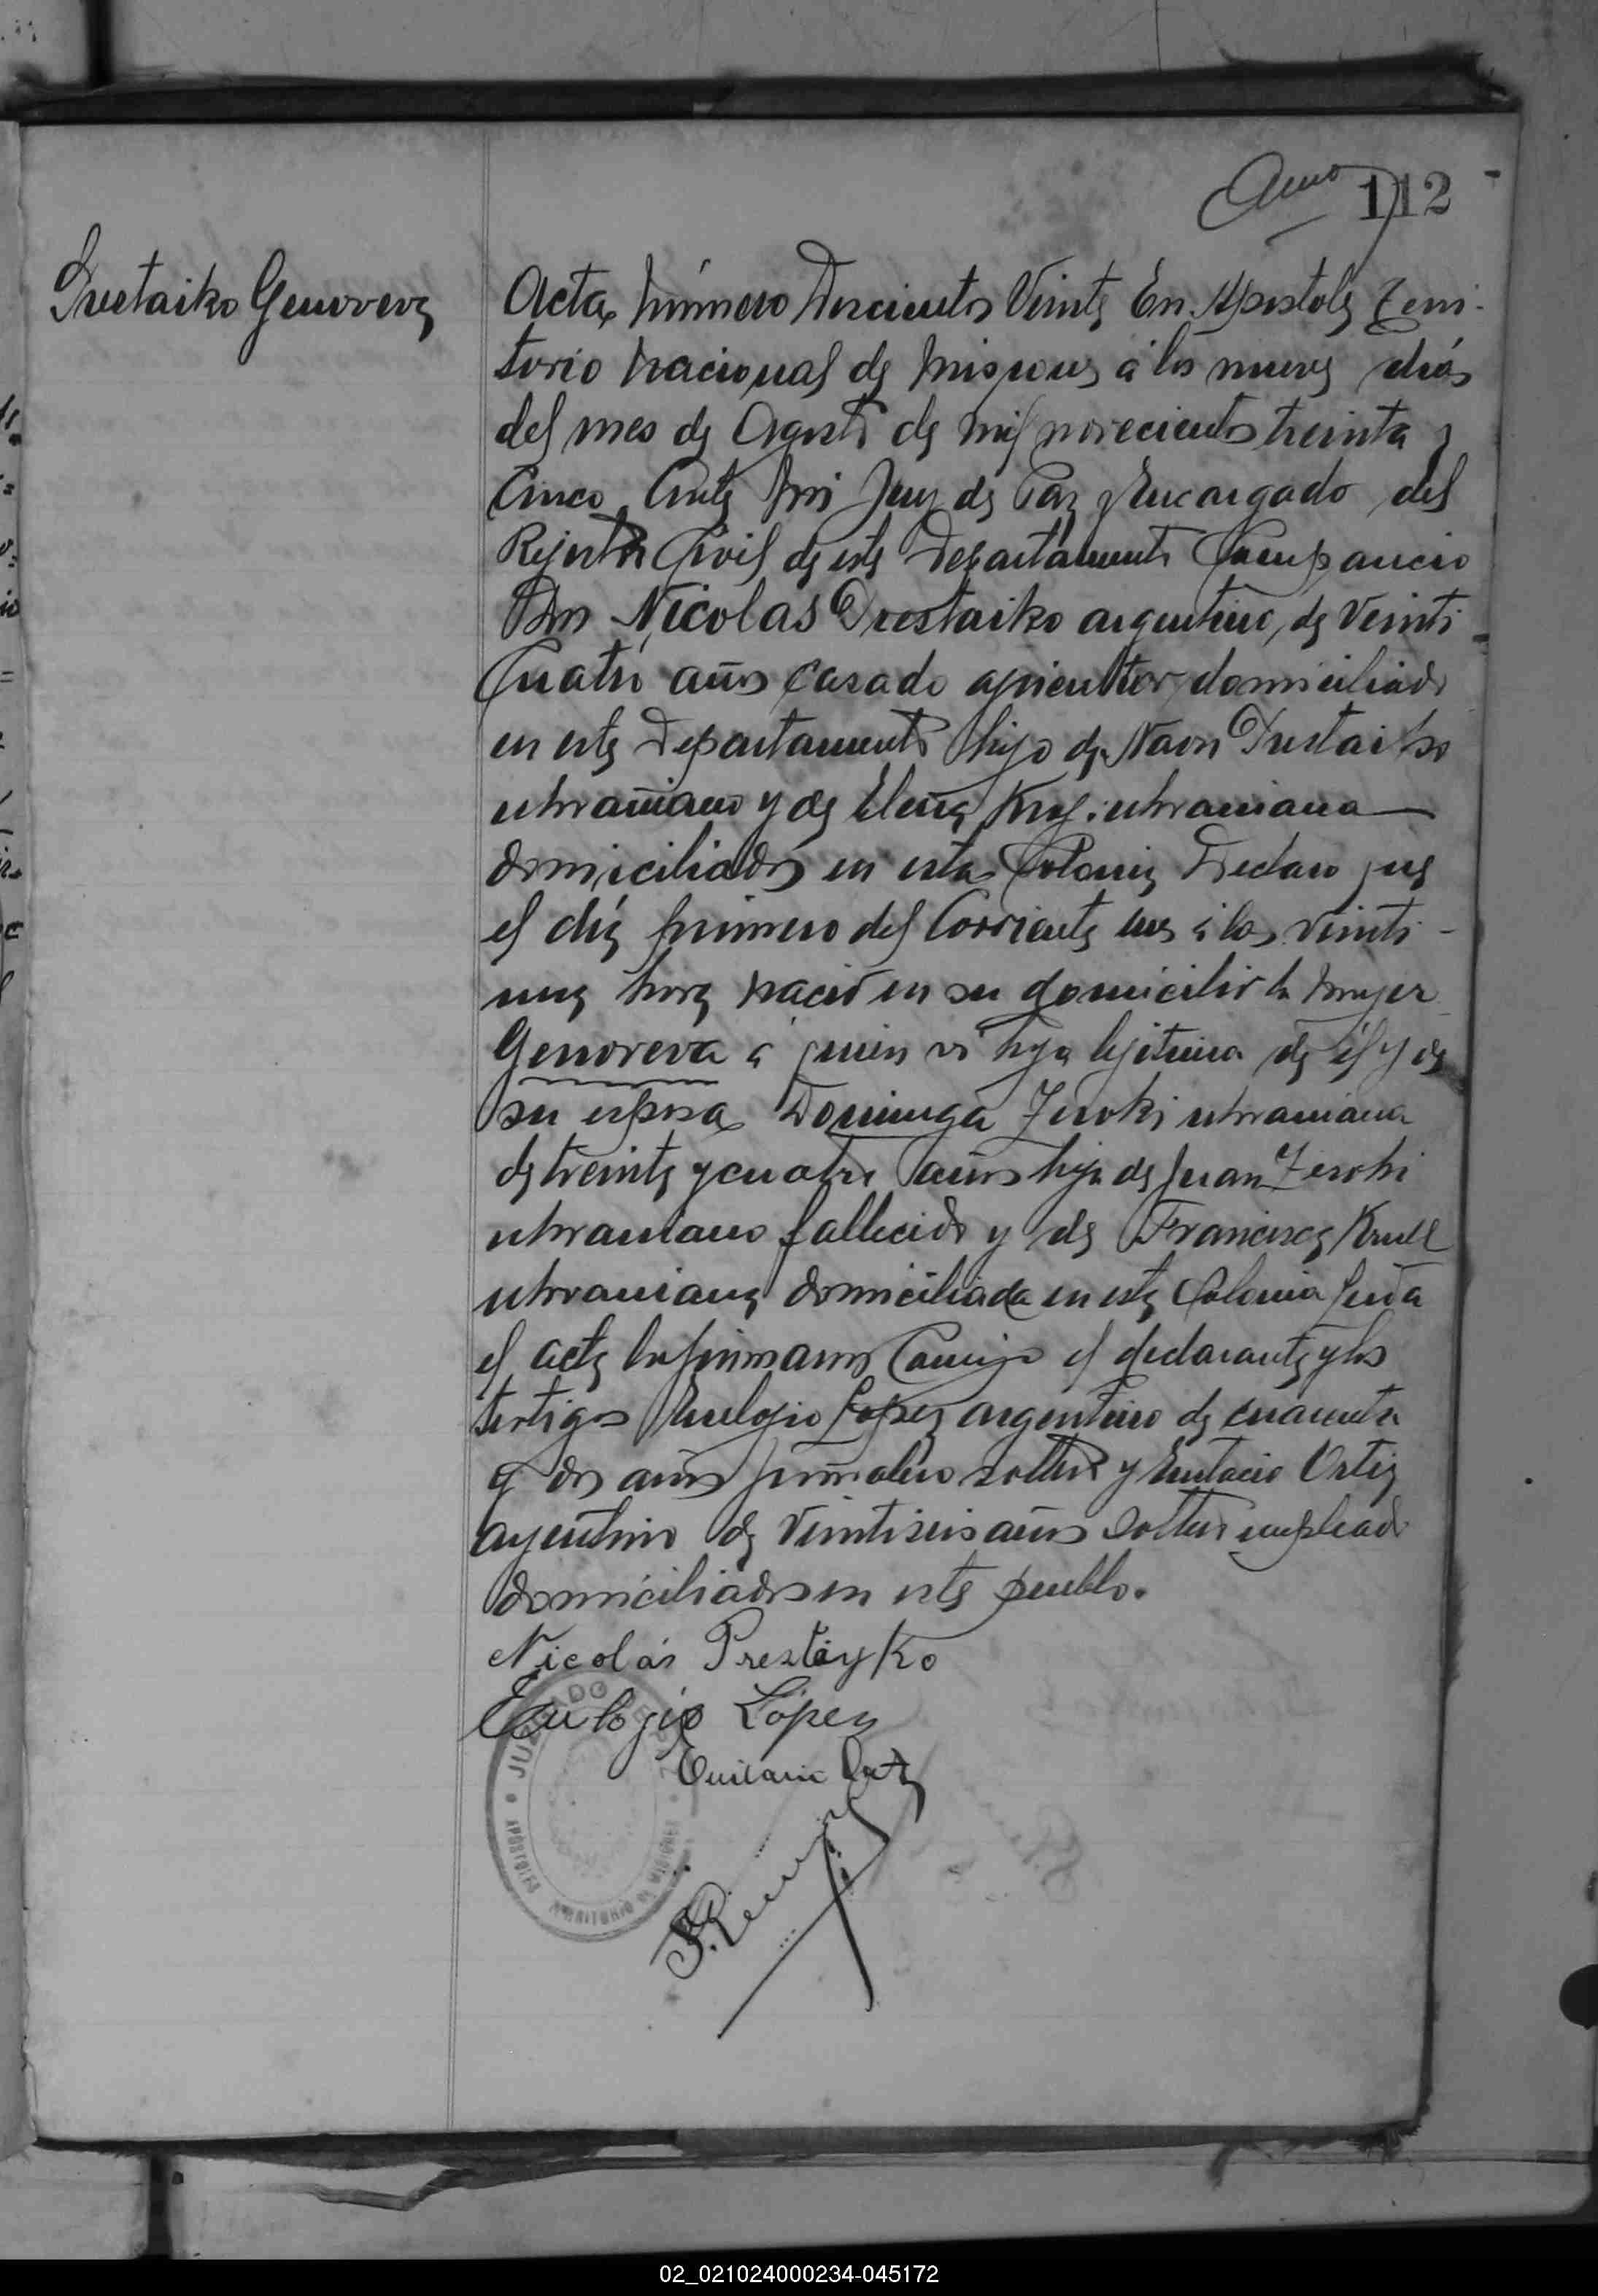 112
Prestaiko Genoveva
Acta Número Doscientos Veinte En Apostoles Terri-
torio Nacional de Misiones á los nueve dias
del mes de Agosto de mil novecientos treinta y
Cinco Ante Mi Juez de Paz y Encargado del
Rejistro Civil de este Departamento Comparecio
Don Nicolas Prestaiko argentino, de Veinti
Cuatro años casado agricultor domiciliado
en este Departamento hijo de Naon Prestaiko
ukraniano y de Elena ukraniana
domiciliados en esta Colonia Declaro que
el dia primero del Corriente mes á las veinti-
una hora nació en su domicilio la mujer
Genoveva á quien vi hija lejitima de él y de
su esposa Dominga Zeroki ukraniana
de treinta y cuatro años hija de Juan Zeroki
ukraniano fallecido y de Francisca Krull
ukraniana domiciliada en esta Colonia Leida
el acta la firmaron Conmigo el declarante y los
testigos Eulogio Lopez argentino de cuarenta
y dos años jornalero soltero y Eustacio Ortiz
argentino de veintiseis años soltero empleado
domiciliados en este pueblo.
Nicolás Prestayko
Eulogio López
JUZGADO DE PAZ
APOSTOLES
02_021024000234-045172